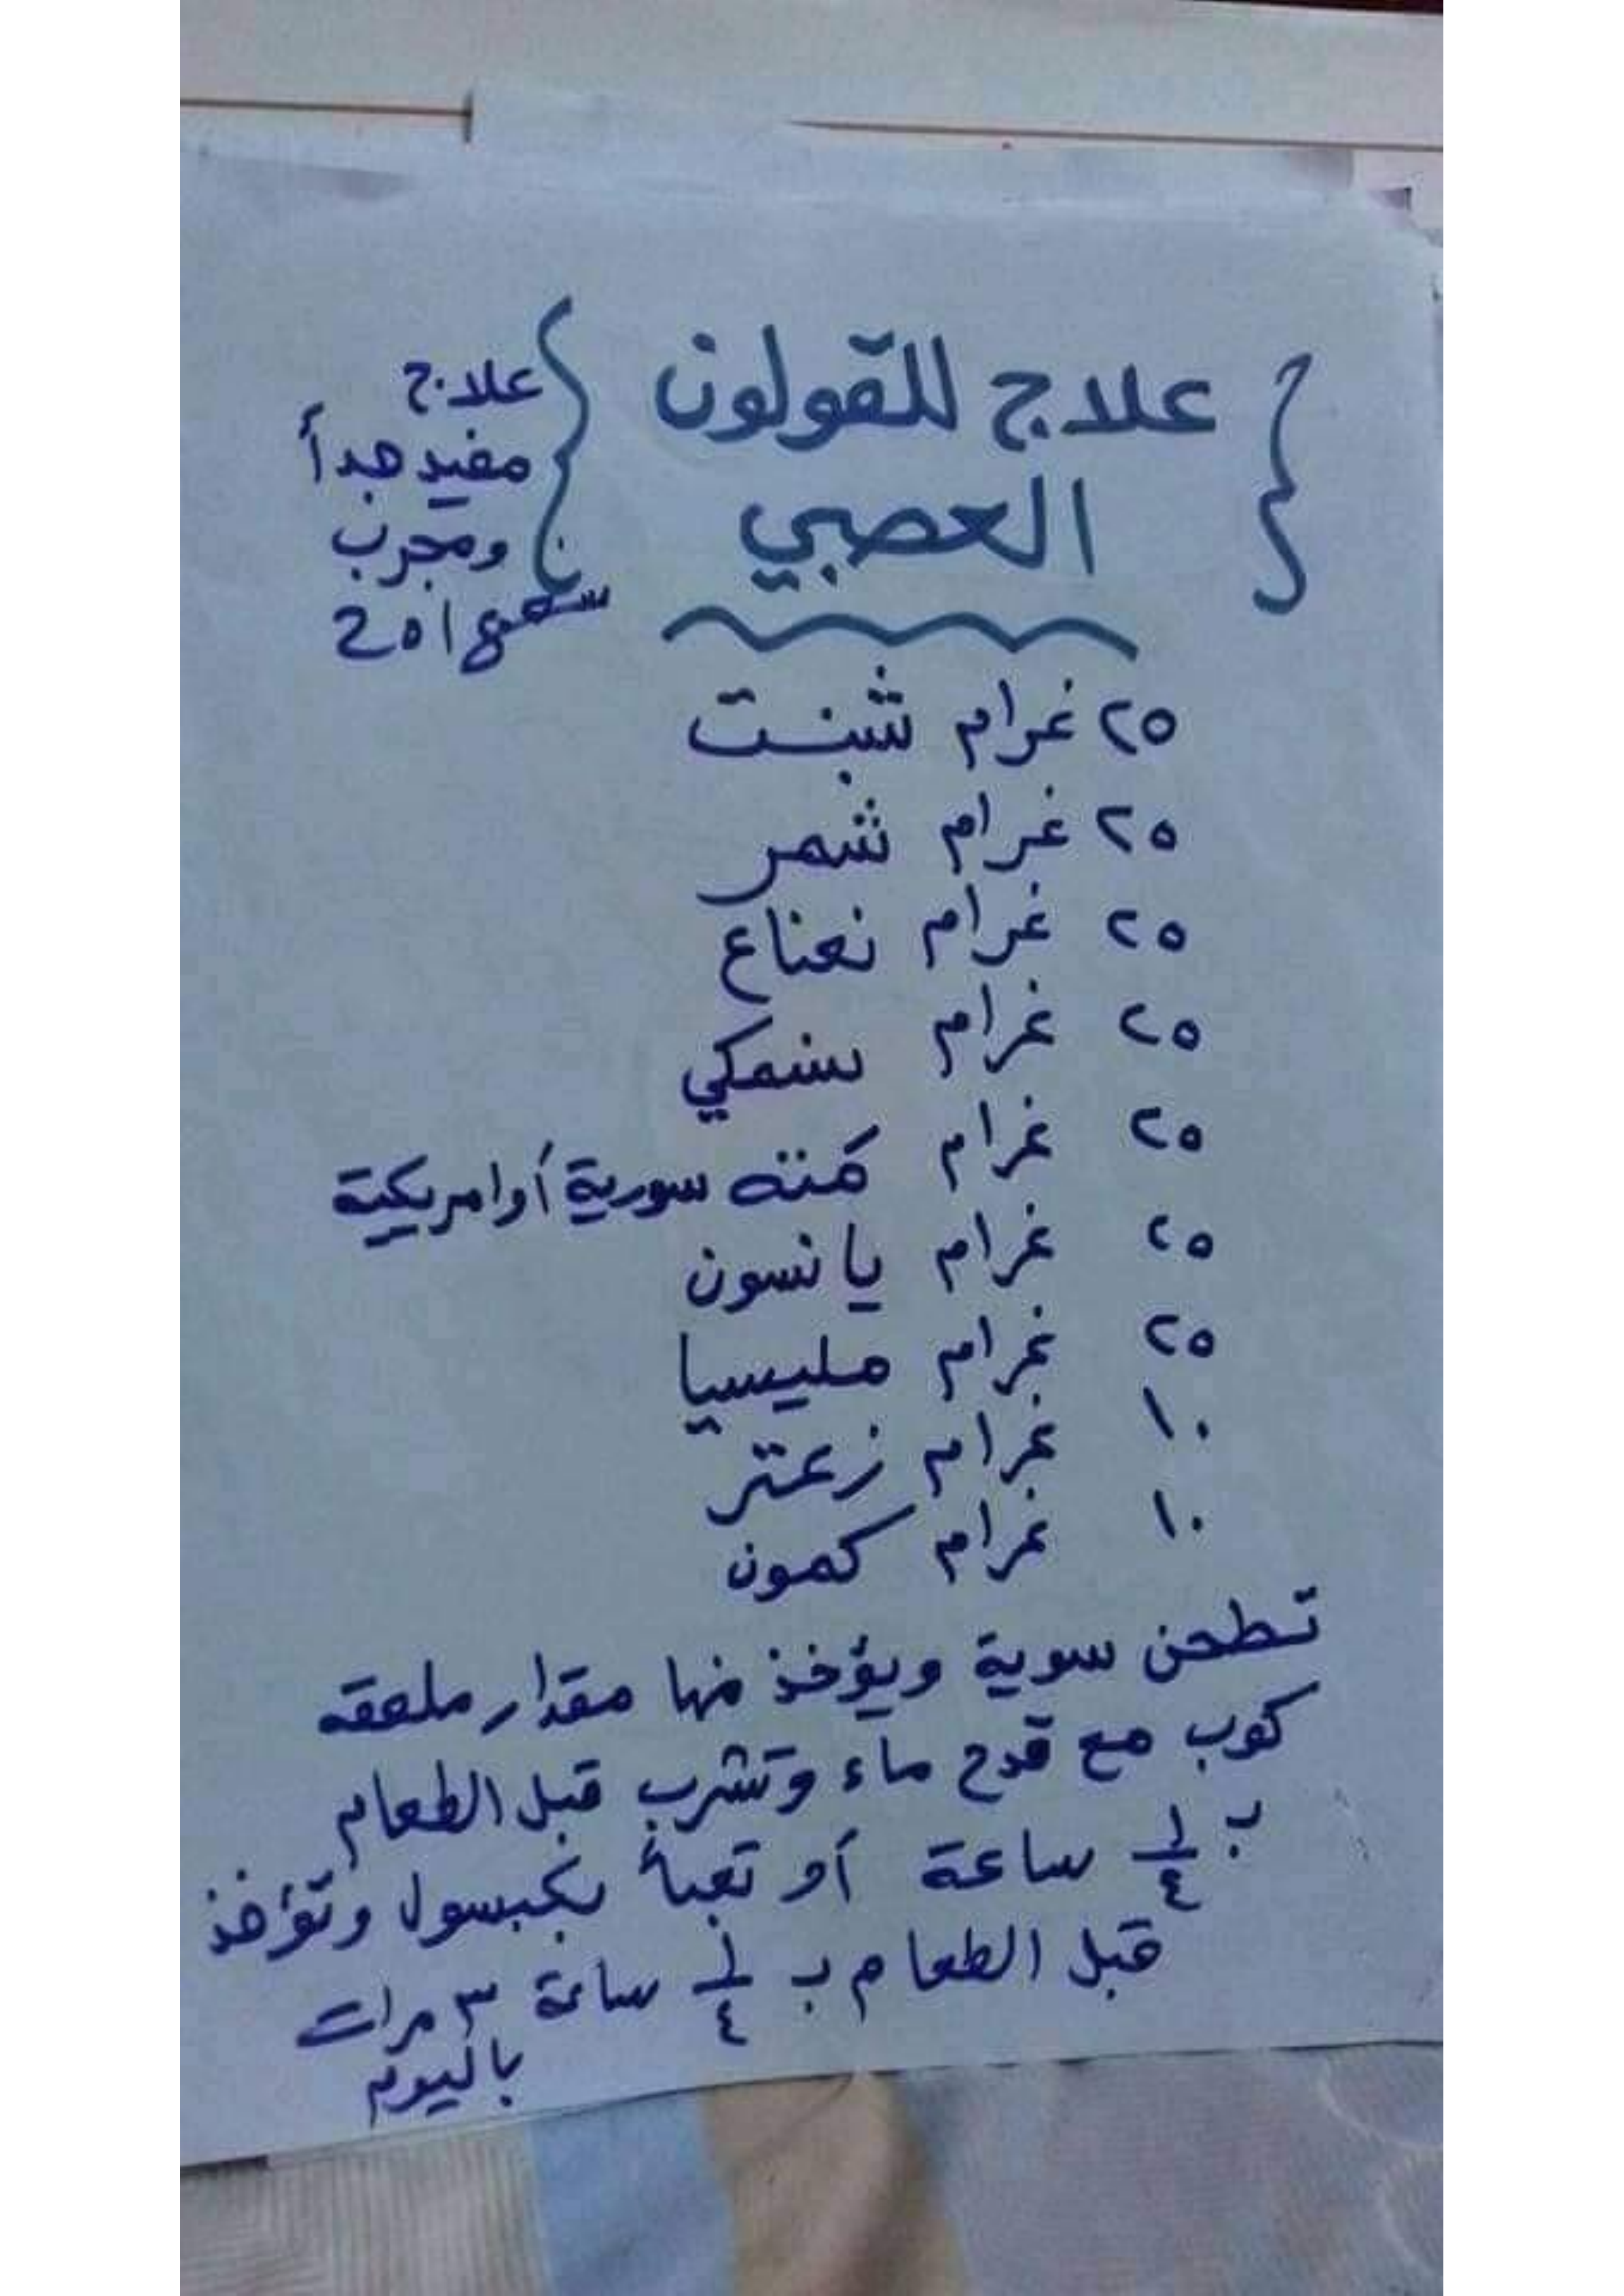 علاج للقولون
العصبي
علاج
مفيد جداً
ومجرب
٢٥ غرام شبنت
٢٥ غرام شمر
٢٥ غرام نعناع
٢٥ غرام سنمكي
٢٥ غرام كمنته سورية أو امريكية
٢٥ غرام يانسون
٢٥ غرام مليسيا
١٠ غرام زعتر
١٠ غرام كمون
تطحن سوية ويؤخذ منها مقدار ملعقه
كوب مع قدح ماء وتشرب قبل الطعام
ب ١/٤ ساعة أو تعبأ بكبسول وتؤخذ
قبل الطعام ب ١/٤ ساعة ٣ مرات
باليوم